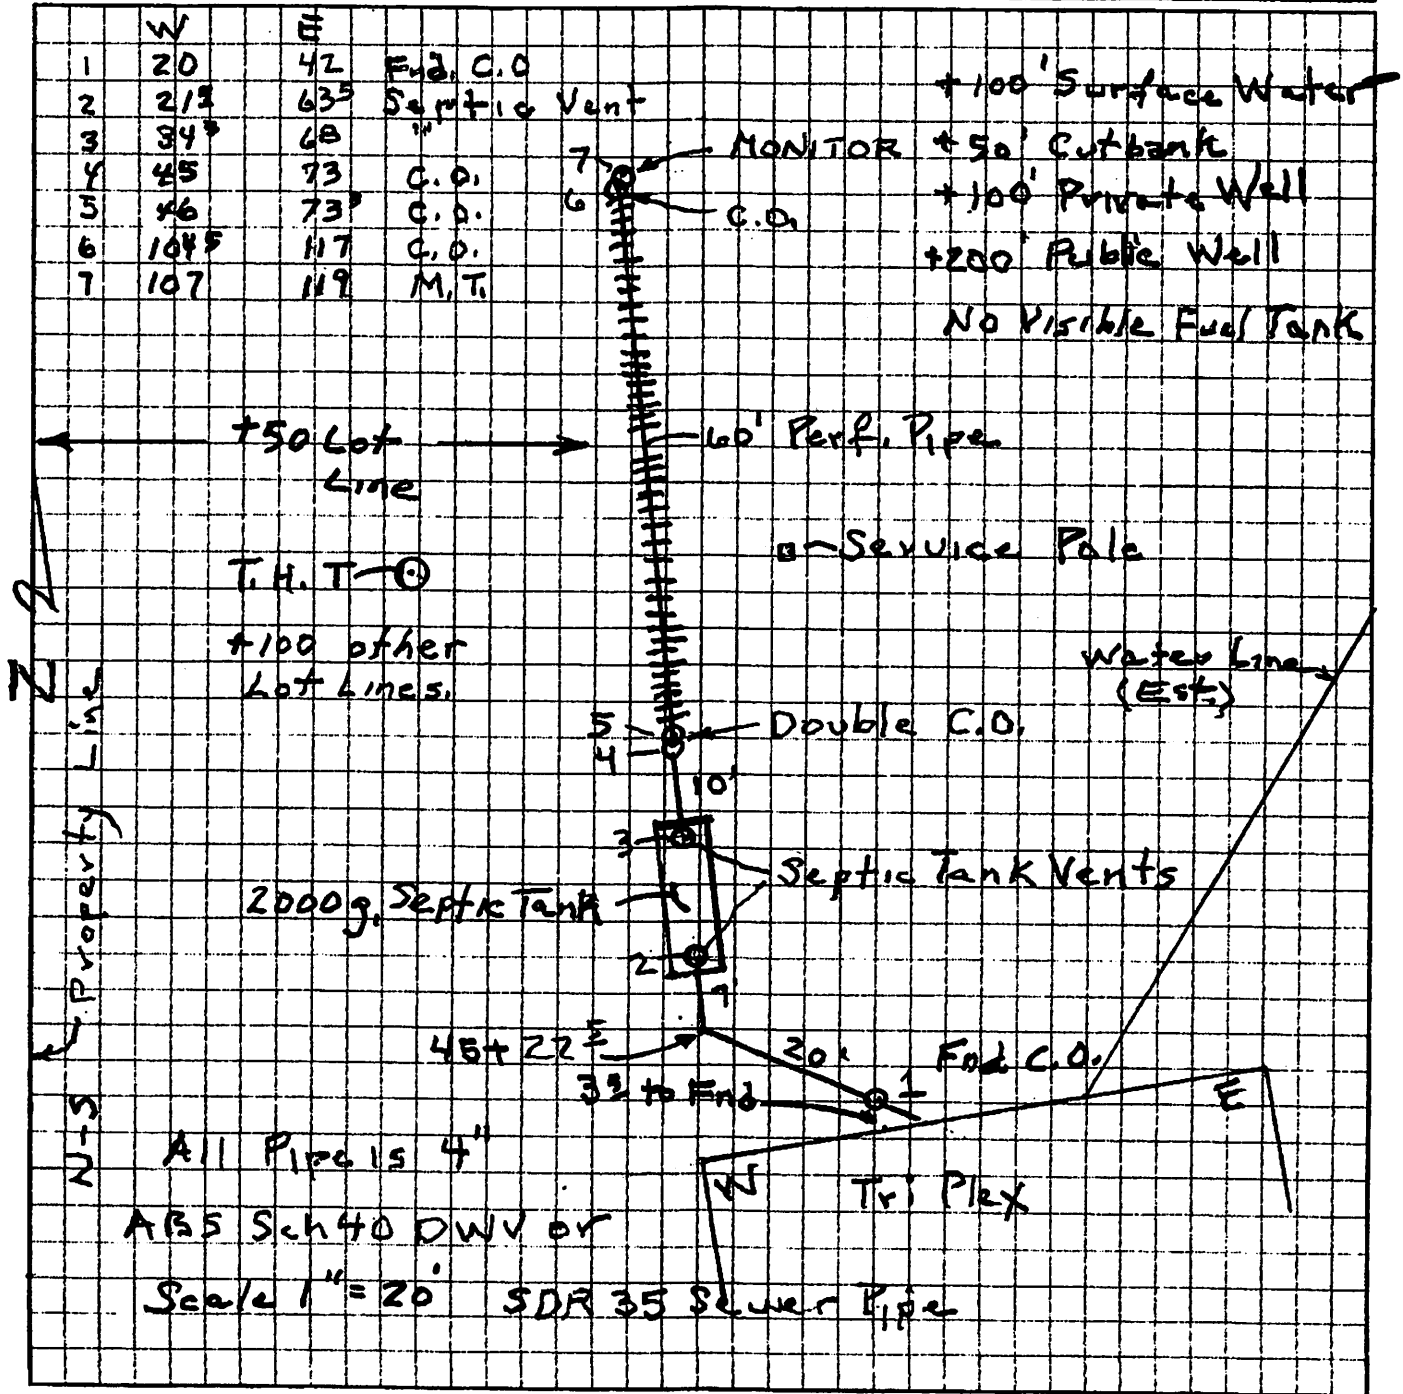 W E
1 20 42 Fnd. C.O
2 21⁵ 63⁵ Septic Vent
3 34⁵ 68 "
4 45 73 C.O.
5 46 73⁵ C.O.
6 104⁵ 117 C.O.
7 107 119 M.T.
+100' Surface Water
+50' Cutbank
+100' Private Well
+200' Public Well
No Visible Fuel Tank
7 MONITOR
6 C.O.
+50 Lot
Line
60' Perf. Pipe
Service Pole
T.H. T
+100 other
Lot Lines.
Water Line
(Est.)
5 Double C.O.
4
10'
3
Septic Tank Vents
2000 g. Septic Tank
2
N-S Property Line
45 + 22⁵
20'
Fnd C.O.
1
3⁵ to Fnd
E
W
Tri Plex
All Pipe is 4"
ABS Sch 40 DWV or
Scale 1" = 20' SDR 35 Sewer Pipe